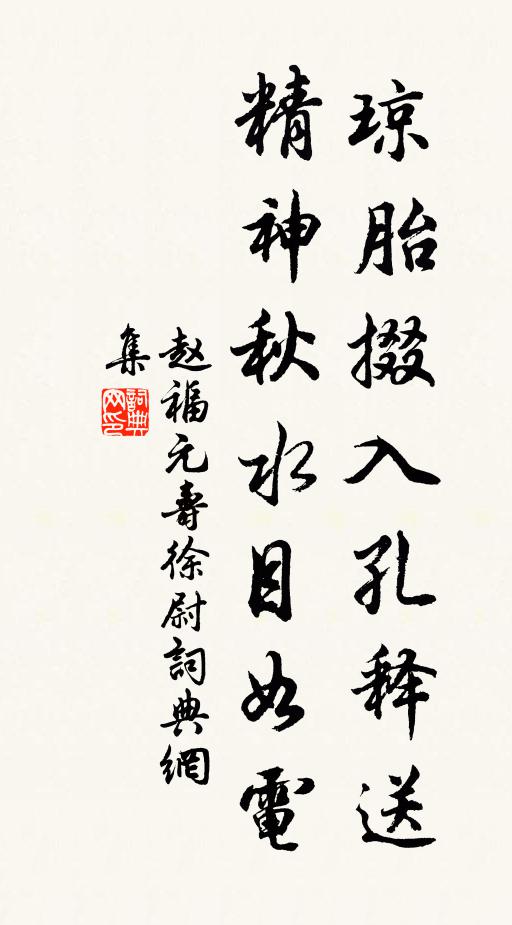 琼胎掇入孔释送
精神秋水目如電
赵福元壽徐尉詞典網
集
詞典
网印